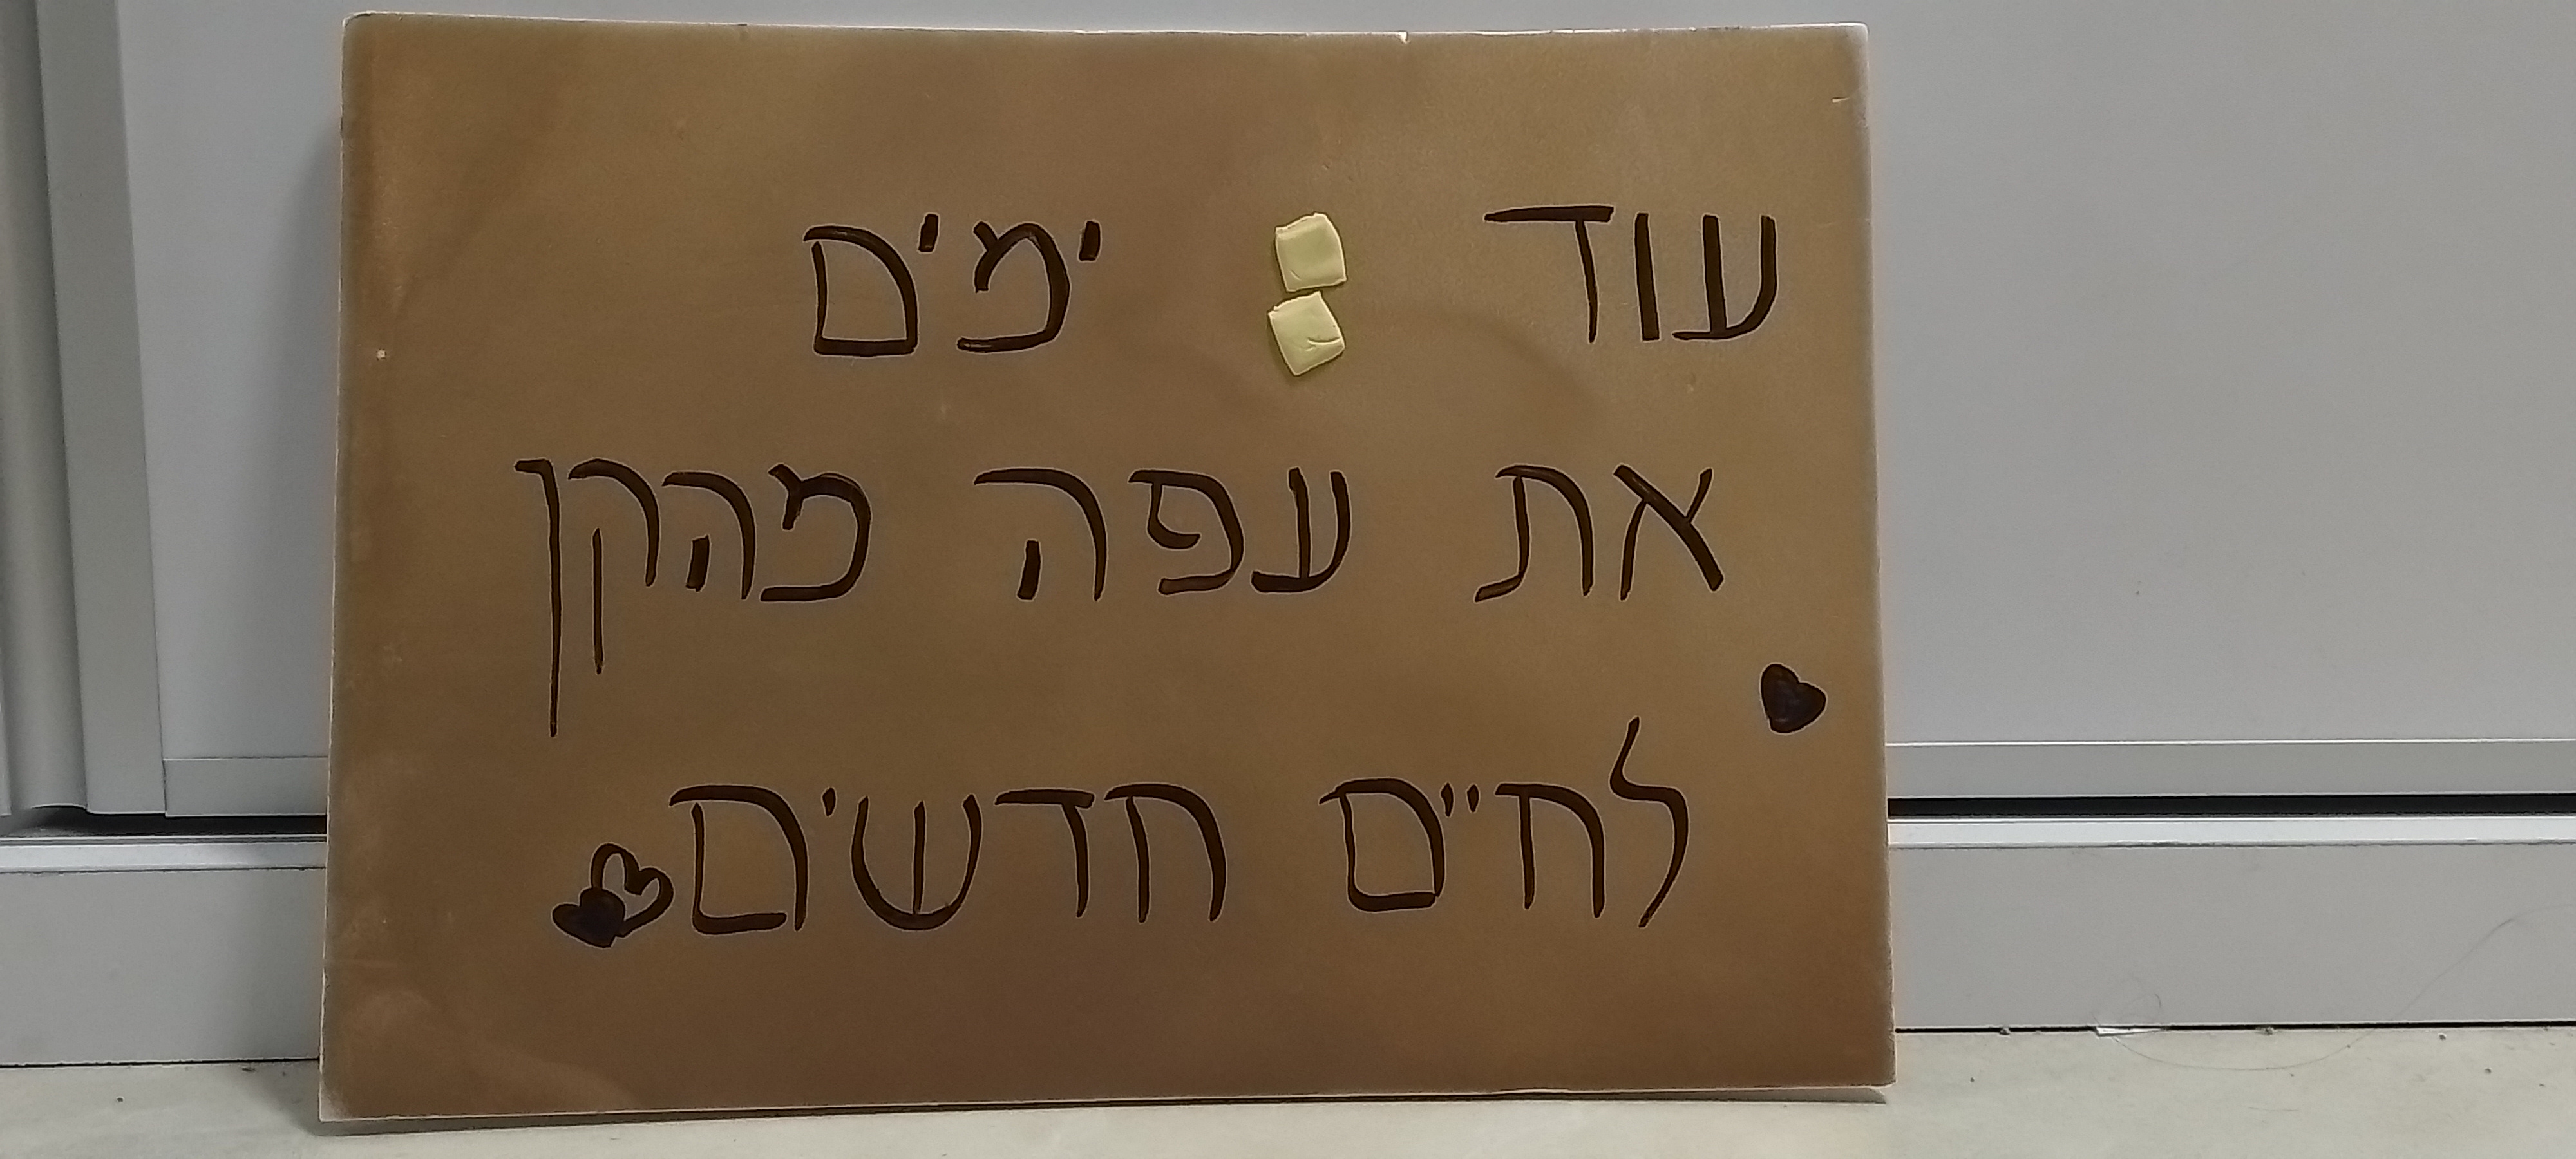 עוד ימים
את עפה מהקן
לחיים חדשים